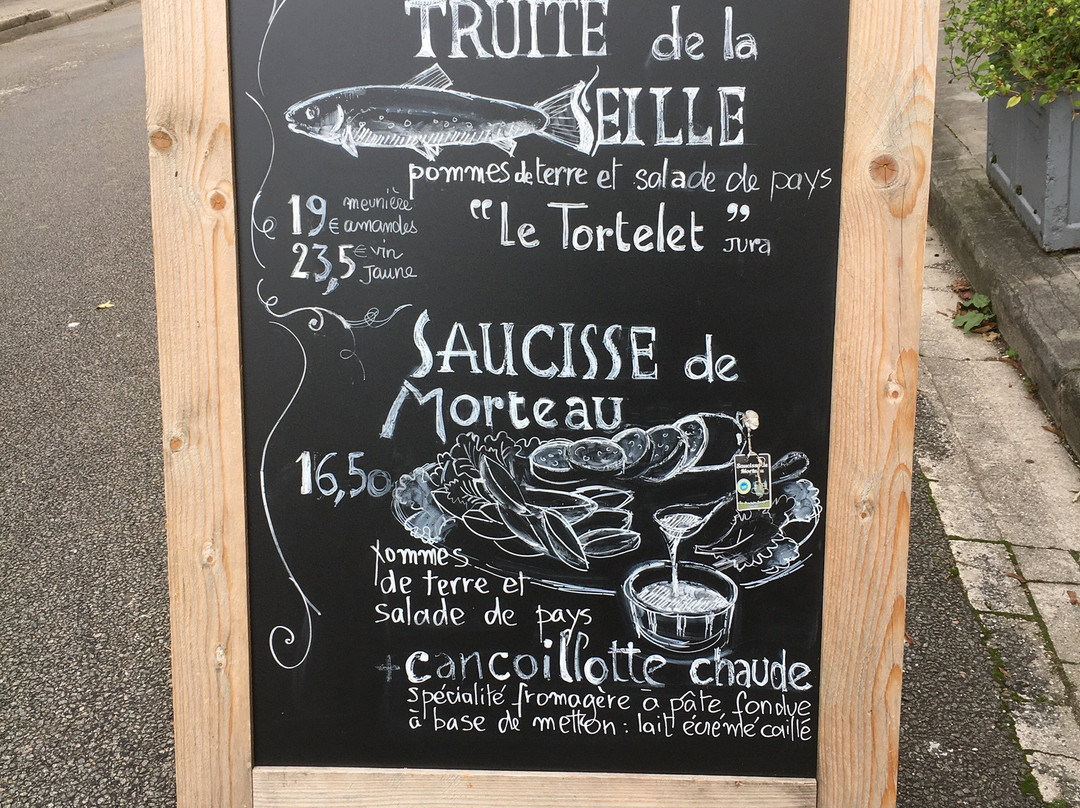 TRUITE de la
SEILLE
pommes de terre et salade de pays
19 € meunière
amandes
23,5 € vin
Jaune
“Le Tortelet” Jura
SAUCISSE de
Morteau
16,50
Saucisse de
Morteau
pommes
de terre et
salade de pays
+ cancoillotte chaude
spécialité fromagère à pâte fondue
à base de metton : lait écrémé caillé